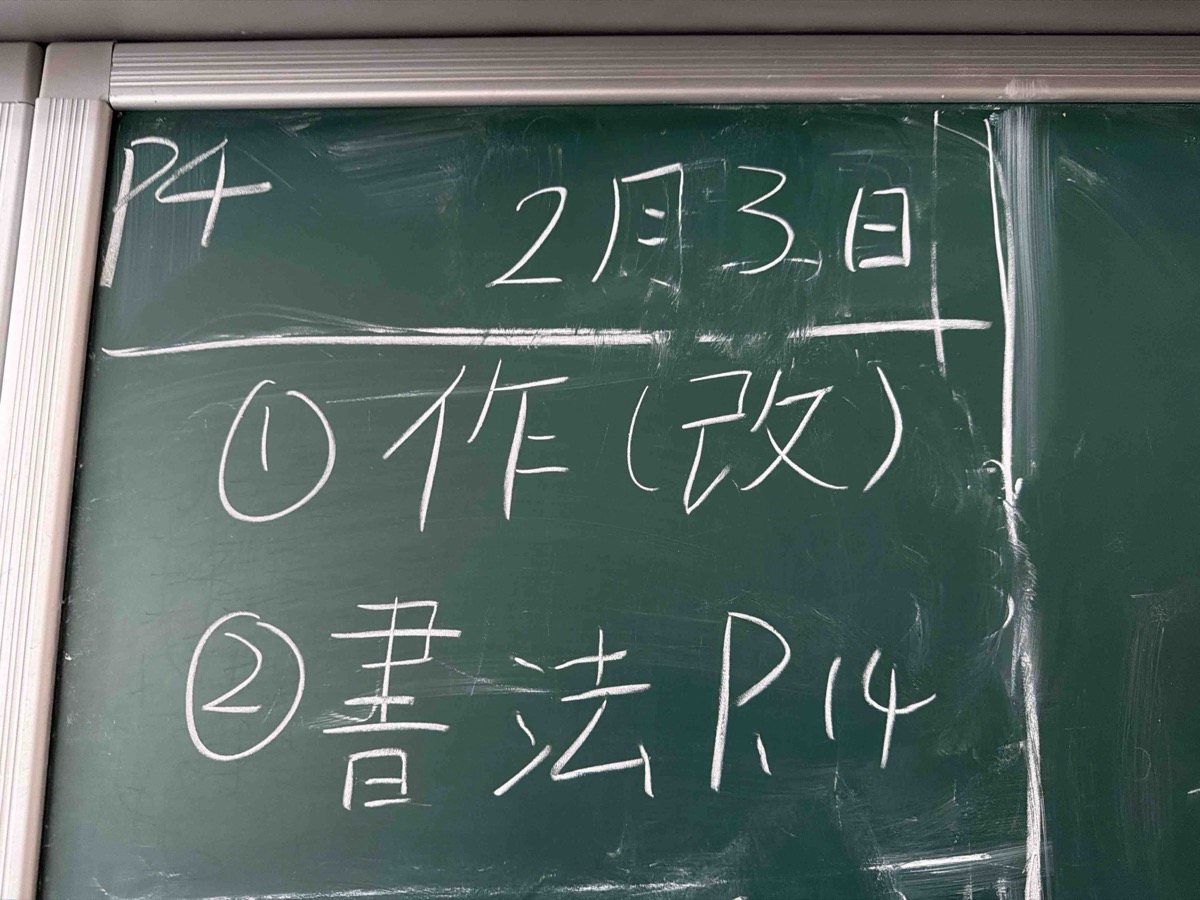 P4 2月3日
① 作(改)
② 書法 P.14